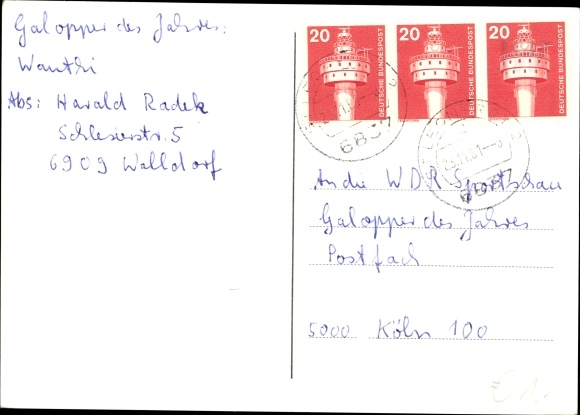 Galopper des Jahres:
Wauthi
Abs: Harald Radek
Schlesierstr. 5
6909 Walldorf
20 DEUTSCHE BUNDESPOST
20 DEUTSCHE BUNDESPOST
20 DEUTSCHE BUNDESPOST
6837
6837
An die WDR Sportschau
Galopper des Jahres
Postfach
5000 Köln 100